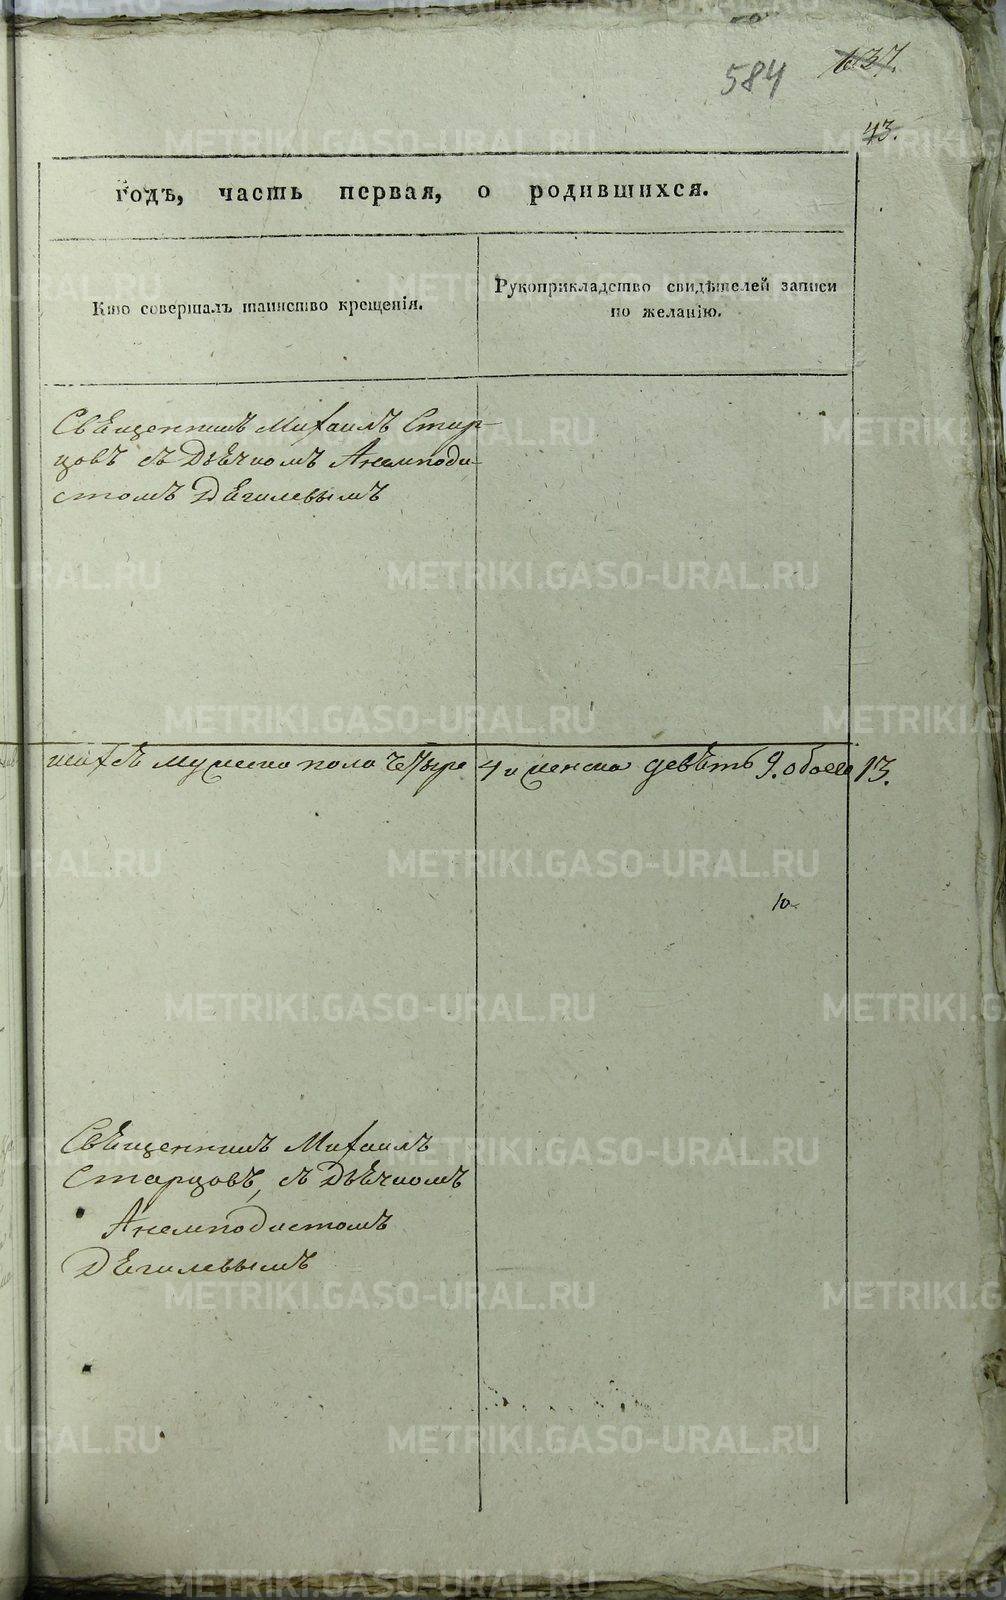 584 137.
43.
годъ, часть первая, о родившихся.
Кто совершалъ таинство крещенія.
Рукоприкладство свидѣтелей записи
по желанію.
Свѣщенникъ Михаилъ Стар-
цовъ съ Дьѣчкомъ Анемподи-
стомъ Дѣгилевымъ
мужеска пола четыре 4 и женска девѣть 9. обоего 13.
10
Свѣщенникъ Михаилъ
Старцовъ, съ Дьѣчкомъ
Анемподистомъ
Дѣгилевымъ
METRIKI.GASO-URAL.RU